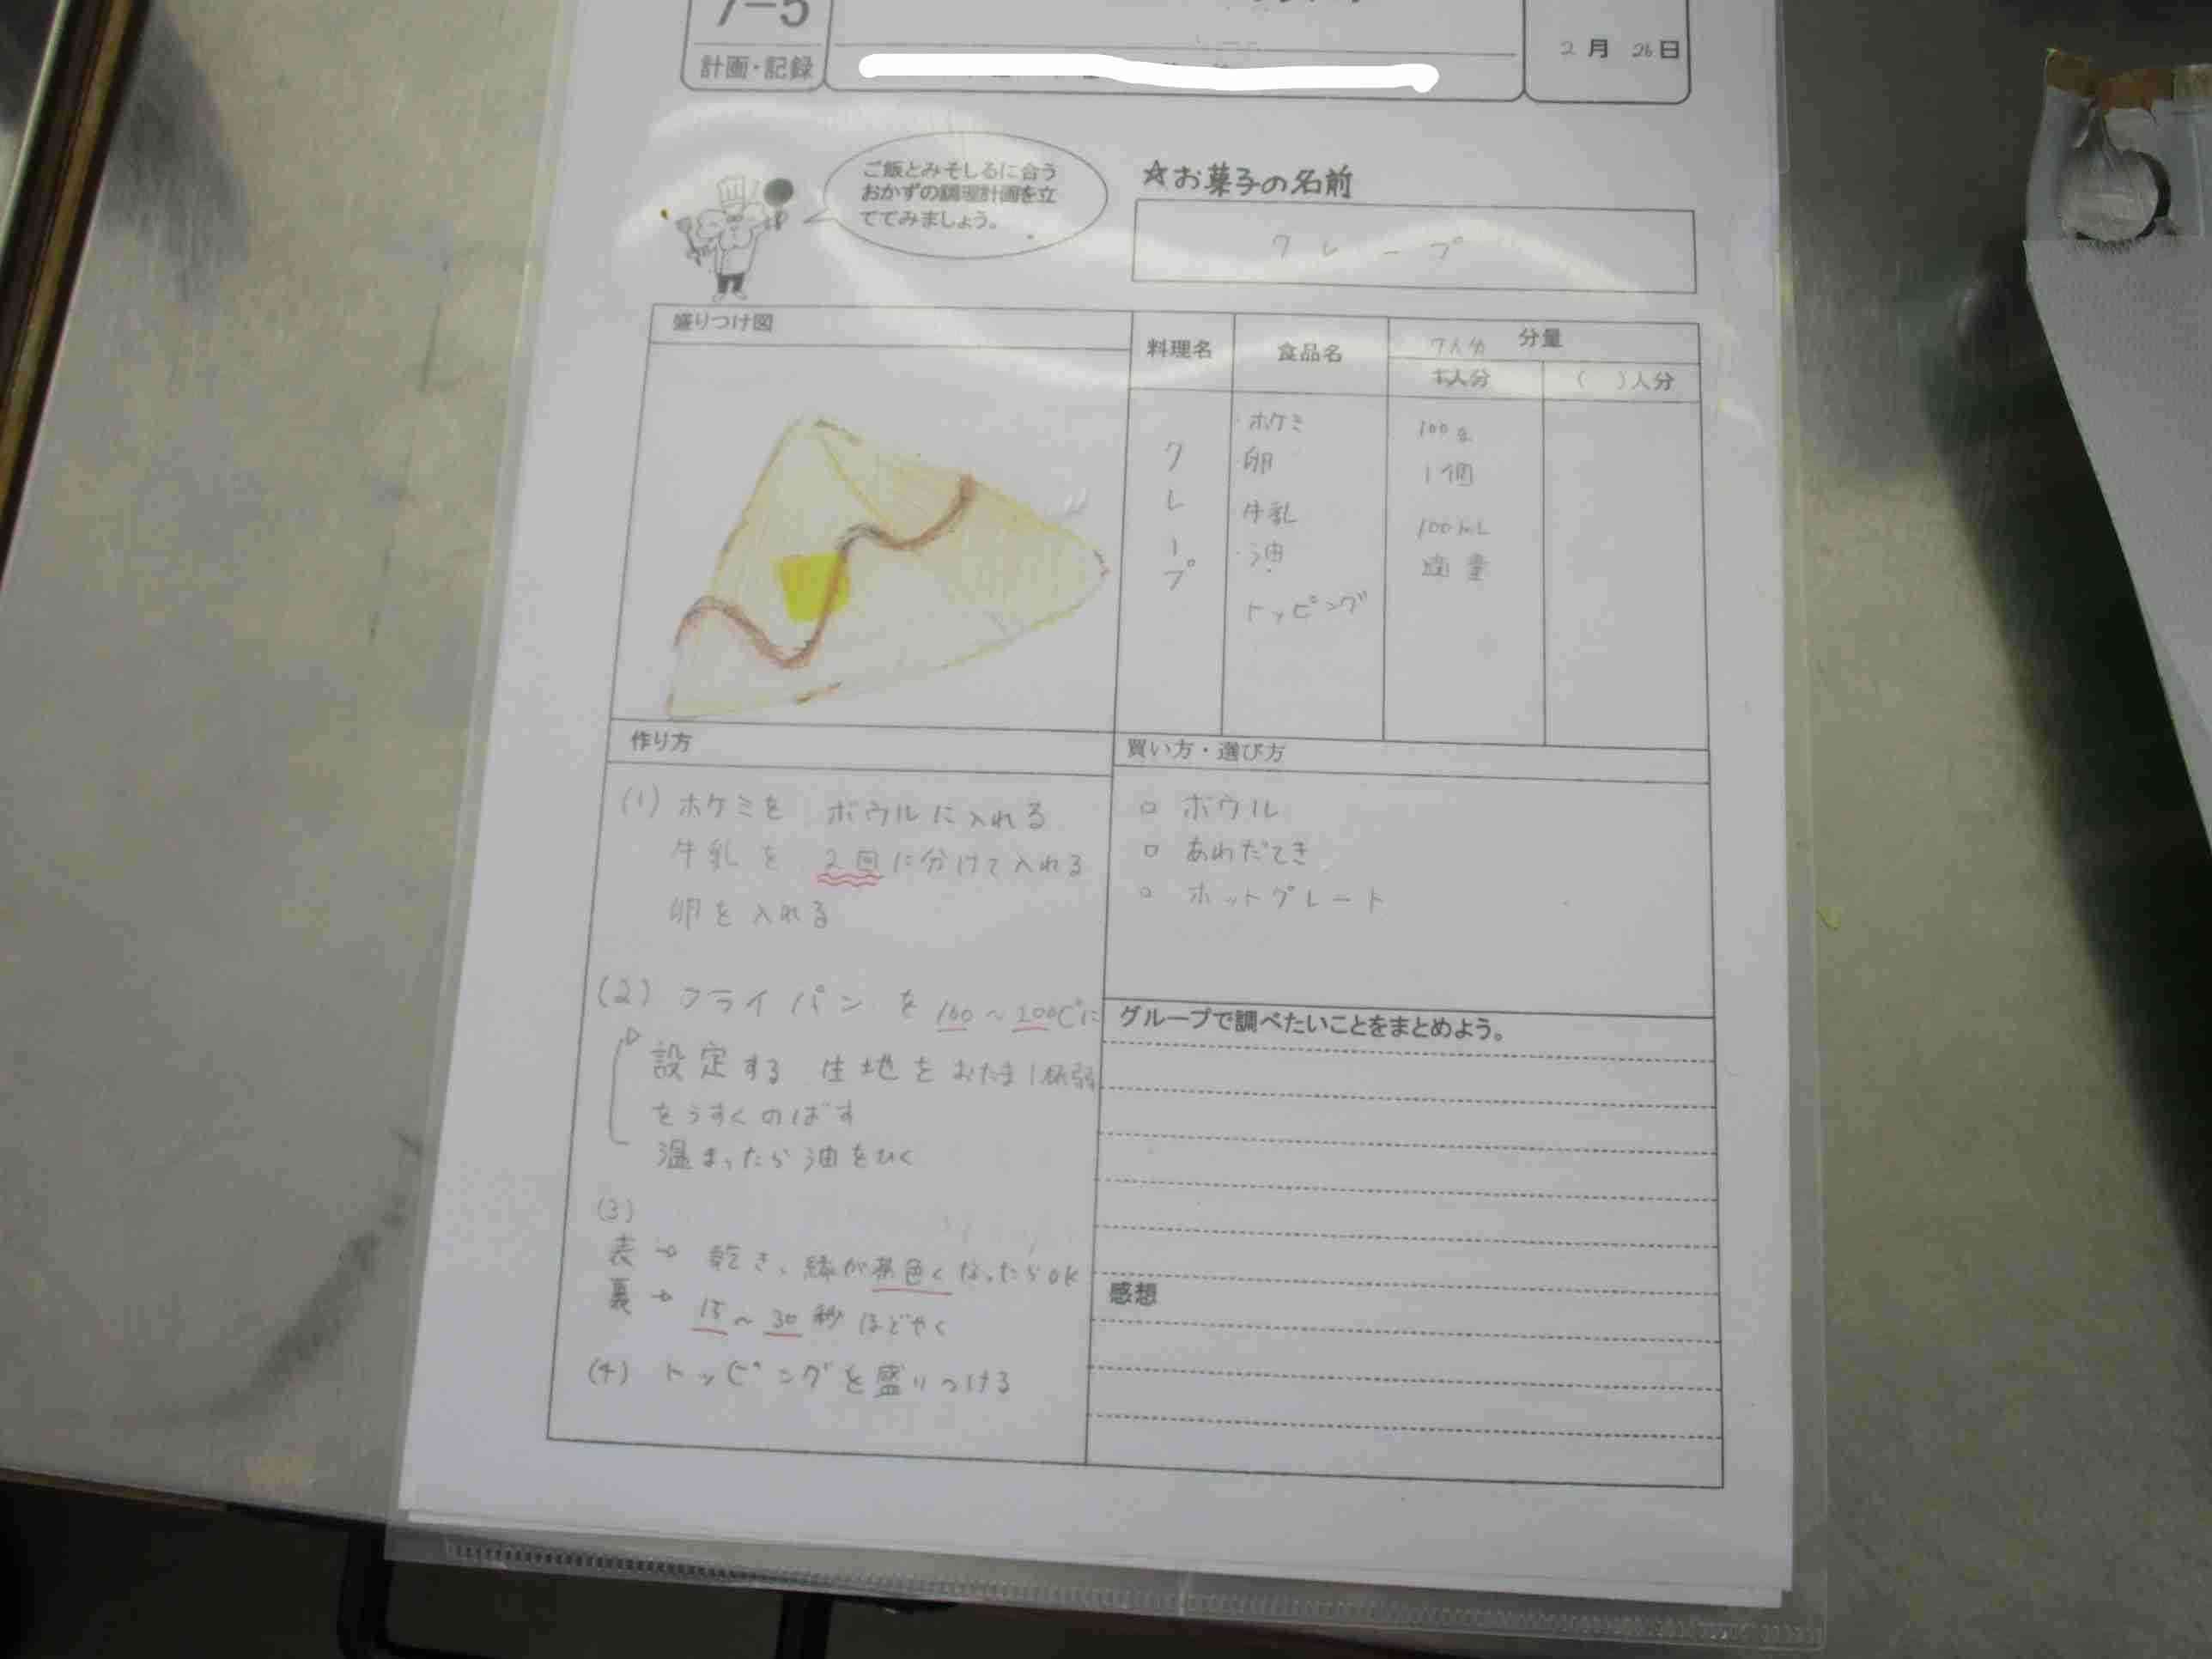 7-5
計画・記録
2月 26日
ご飯とみそしるに合う
おかずの調理計画を立
ててみましょう。
☆お菓子の名前
クレープ
盛りつけ図
料理名
食品名
分量
7人分
1人分
( )人分
クレープ
・ホケミ 100g
・卵 1個
・牛乳 100mL
・油 適量
トッピング
作り方
(1) ホケミを ボウルに入れる
牛乳を 2回に分けて入れる
卵を入れる
(2) フライパンを 160〜200℃に
設定する 生地をおたま1杯弱
をうすくのばす
温まったら油をひく
(3)
表→ 乾き、縁が茶色くなったらOK
裏→ 15〜30秒ほどやく
(4) トッピングを盛りつける
買い方・選び方
○ ボウル
○ あわだてき
○ ホットプレート
グループで調べたいことをまとめよう。
感想